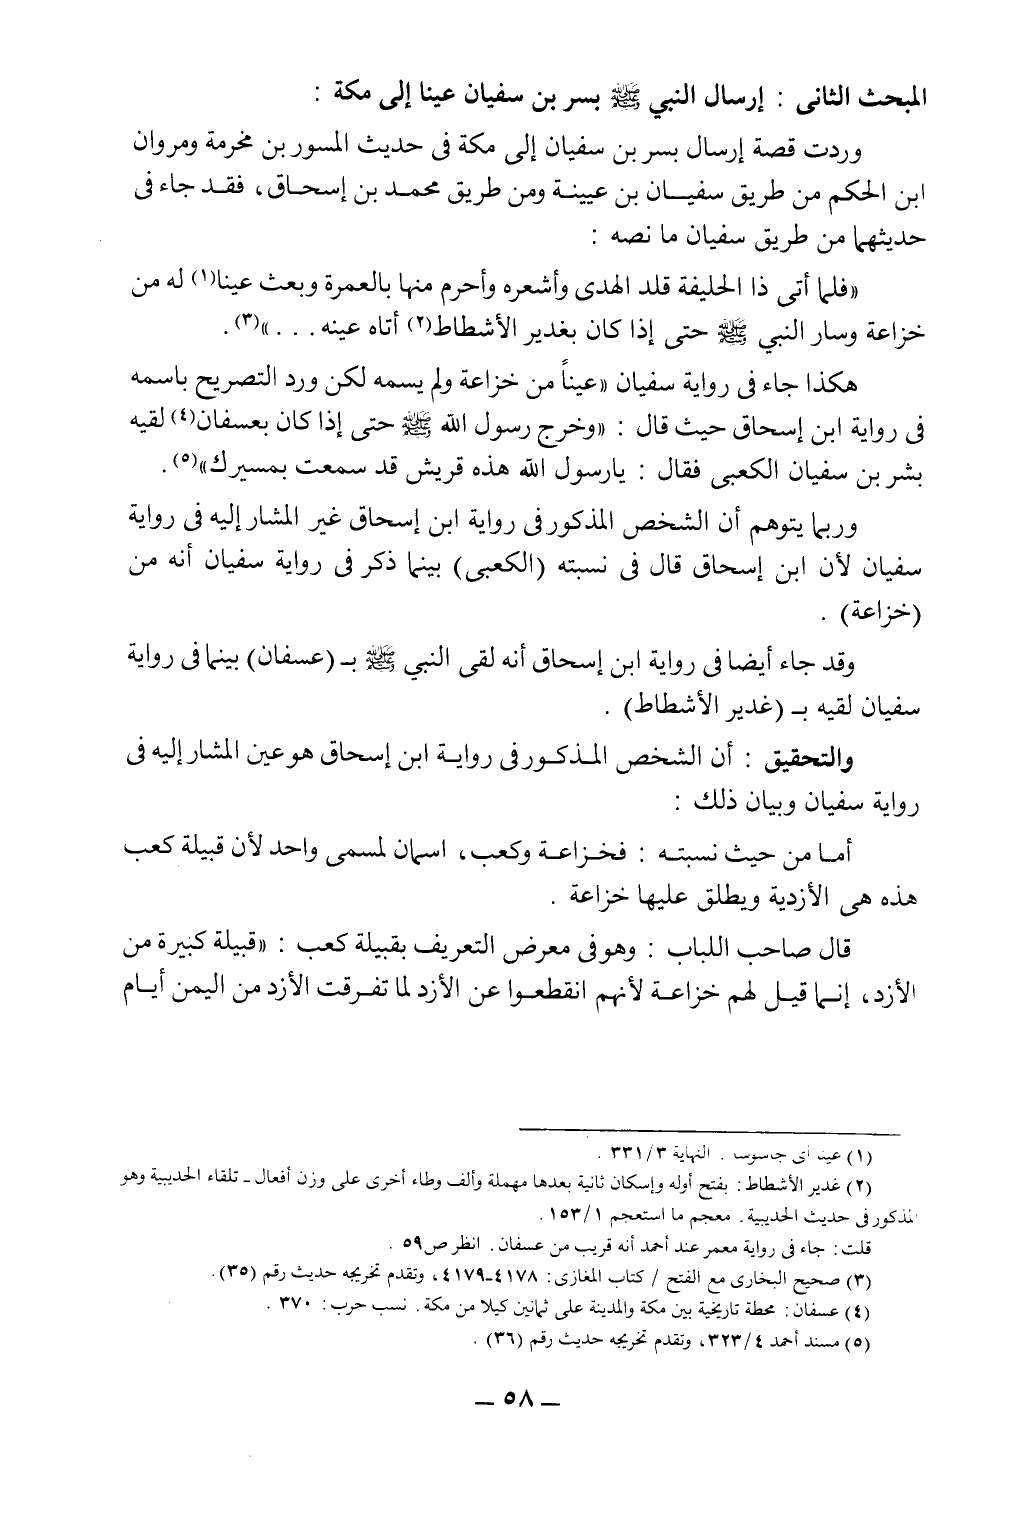 المبحث الثانى : إرسال النبي ﷺ بسر بن سفيان عينا إلى مكة :
وردت قصة إرسال بسر بن سفيان إلى مكة فى حديث المسور بن مخرمة ومروان
ابن الحكم من طريق سفيــان بن عيينة ومن طريق محمد بن إسحاق، فقد جاء فى
حديثهما من طريق سفيان ما نصه :
«فلما أتى ذا الحليفة قلد الهدى وأشعره وأحرم منها بالعمرة وبعث عينا(١) له من
خزاعة وسار النبي ﷺ حتى إذا كان بغدير الأشطاط(٢) أتاه عينه . . . »(٣).
هكذا جاء فى رواية سفيان «عيناً من خزاعة ولم يسمه لكن ورد التصريح باسمه
فى رواية ابن إسحاق حيث قال : «وخرج رسول الله ﷺ حتى إذا كان بعسفان(٤) لقيه
بشر بن سفيان الكعبى فقال : يارسول الله هذه قريش قد سمعت بمسيرك»(٥).
وربما يتوهم أن الشخص المذكور فى رواية ابن إسحاق غير المشار إليه فى رواية
سفيان لأن ابن إسحاق قال فى نسبته (الكعبى) بينما ذكر فى رواية سفيان أنه من
(خزاعة) .
وقد جاء أيضا فى رواية ابن إسحاق أنه لقى النبي ﷺ بـ (عسفان) بينما فى رواية
سفيان لقيه بـ (غدير الأشطاط) .
والتحقيق : أن الشخص المـذكـور فى روايـة ابن إسحاق هو عين المشار إليه فى
رواية سفيان وبيان ذلك :
أمـا من حيث نسبتـه : فخـزاعـة وكعب، اسمان لمسمى واحد لأن قبيلة كعب
هذه هى الأزدية ويطلق عليها خزاعة .
قال صاحب اللباب : وهو فى معرض التعريف بقبيلة كعب : «قبيلة كبيرة من
الأزد، إنـما قيـل لهم خزاعـة لأنهم انقطعـوا عن الأزد لما تفـرقت الأزد من اليمن أيـام
(١) عينا أى جاسوسا . النهاية ٣٣١/٣ .
(٢) غدير الأشطاط: بفتح أوله وإسكان ثانية بعدها مهملة وألف وطاء أخرى على وزن أفعال ـ تلقاء الحديبية وهو
المذكور فى حديث الحديبية. معجم ما استعجم ١٥٣/١ .
قلت: جاء فى رواية معمر عند أحمد أنه قريب من عسفان. انظر ص٥٩ .
(٣) صحيح البخارى مع الفتح / كتاب المغازى: ٤١٧٨ـ٤١٧٩، وتقدم تخريجه حديث رقم (٣٥).
(٤) عسفان: محطة تاريخية بين مكة والمدينة على ثمانين كيلا من مكة. نسب حرب: ٣٧٠ .
(٥) مسند أحمد ٣٢٣/٤، وتقدم تخريجه حديث رقم (٣٦) .
ـ ٥٨ ـ